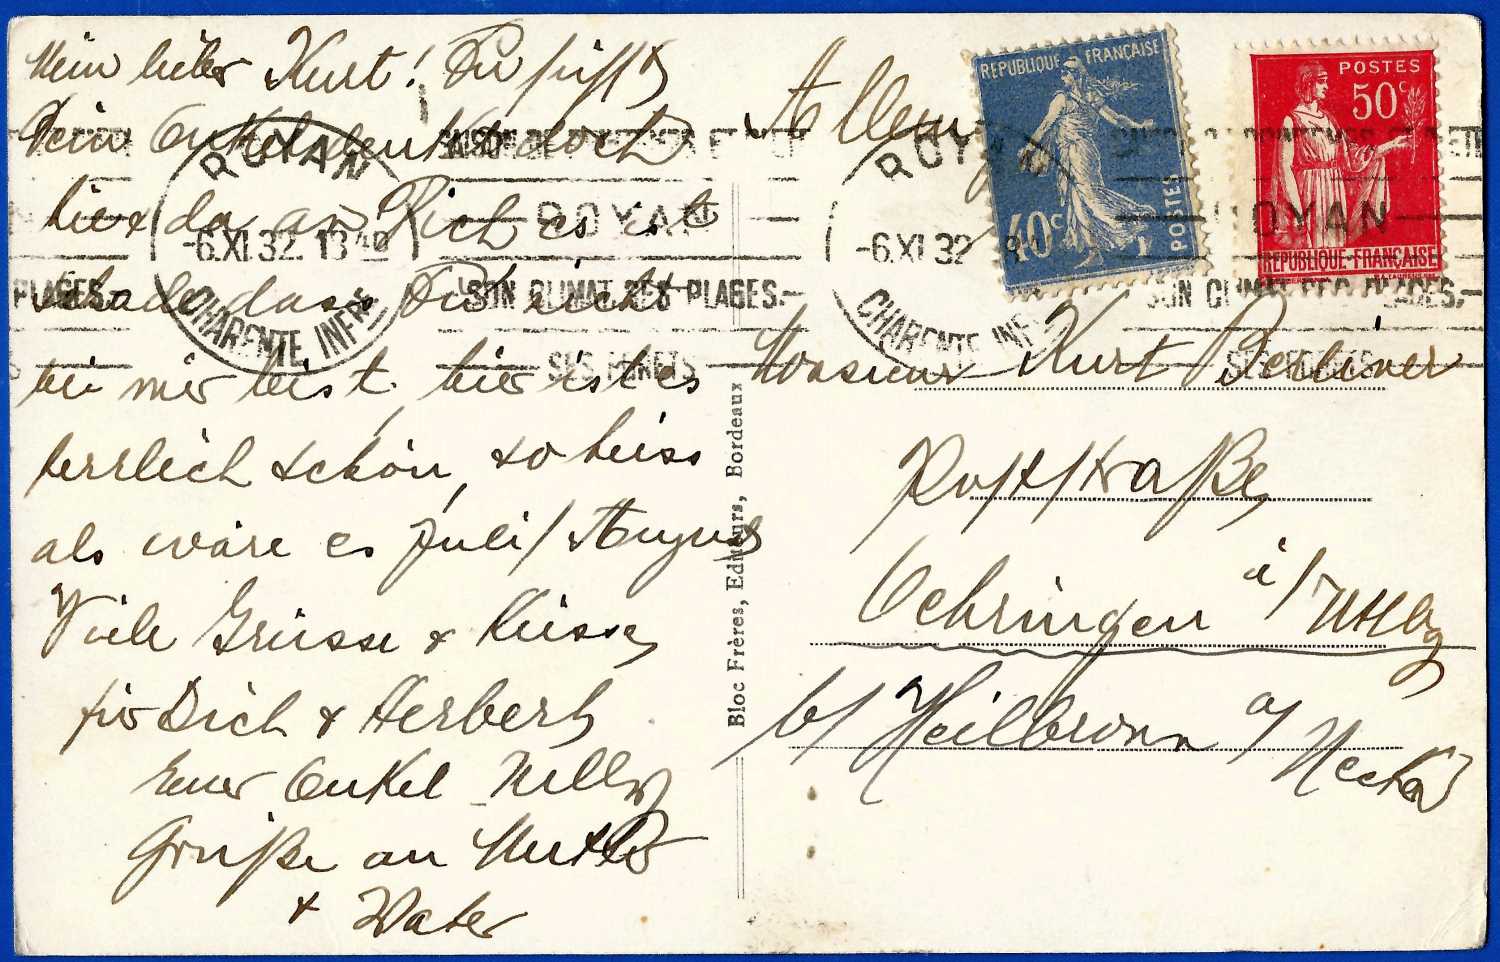 Mein lieber Kurt! Du siehst
Dein Onkel denkt doch
hier da an Dich es ist
schade dass Du nicht
bei mir bist, hier ist es
herrlich schön, so heiss
als wäre es Juli/August
Viele Grüsse & Küsse
für Dich & Herbert
Euer Onkel Willy
Grüße an Mutter
& Vater
Bloc Frères, Editeurs, Bordeaux
Allemagne
Monsieur Kurt Berliner
Poststraße
Oehringen i/Wttbg
b/ Heilbronn a/
Neckar
REPUBLIQUE FRANÇAISE
40c
POSTES
POSTES
50c
REPUBLIQUE FRANÇAISE
ROYAN
-6.XI.32. 1840
CHARENTE INFRE
ROYAN
SON CLIMAT SES PLAGES.
SES FORETS
ROYAN
-6.XI.32
CHARENTE INFRE
ROYAN
SON CLIMAT SES PLAGES.
SES FORETS
PLAGES.